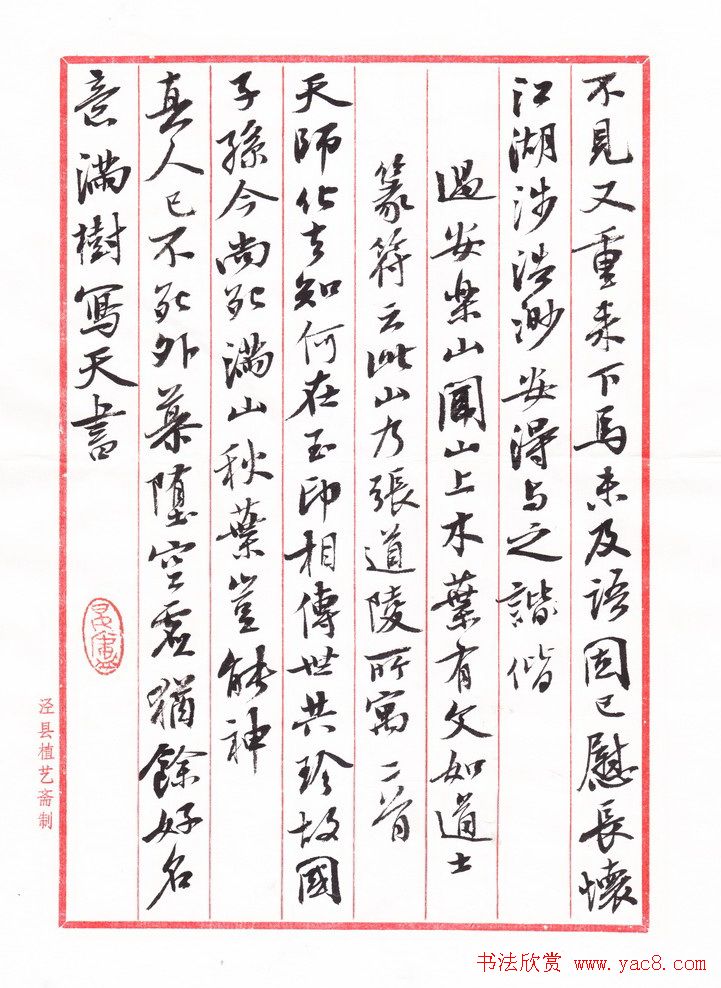 不見又重來下馬未及語固已慰長懷
江湖涉浩渺安得与之諧偕
過安楽山聞山上木葉有文如道士
篆符云此山乃張道陵所寓二首
天師化去知何在玉印相傳世共珍故國
子孫今尚死滿山秋葉豈能神
真人已不死外慕墮空虛猶餘好名
意滿樹寫天書
泾县植艺斋制
书法欣赏 www.yac8.com